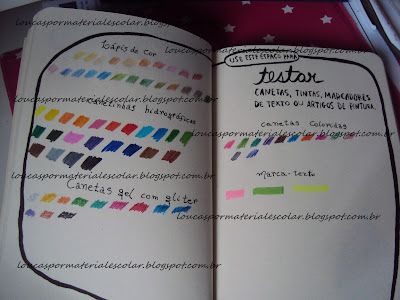 loucaspormaterialescolar.blogspot.com.br
Lápis de cor
loucaspormaterialescolar.blogspot.com.br
Canetinhas hidrográficas
loucaspormaterialescolar.blogspot.com.br
Canetas gel com gliter
loucaspormaterialescolar.blogspot.com.br
loucaspormaterialescolar.blogspot.com.br
USE ESTE ESPAÇO PARA
testar
CANETAS, TINTAS, MARCADORES
DE TEXTO OU ARTIGOS DE PINTURA.
canetas coloridas
Marca-texto